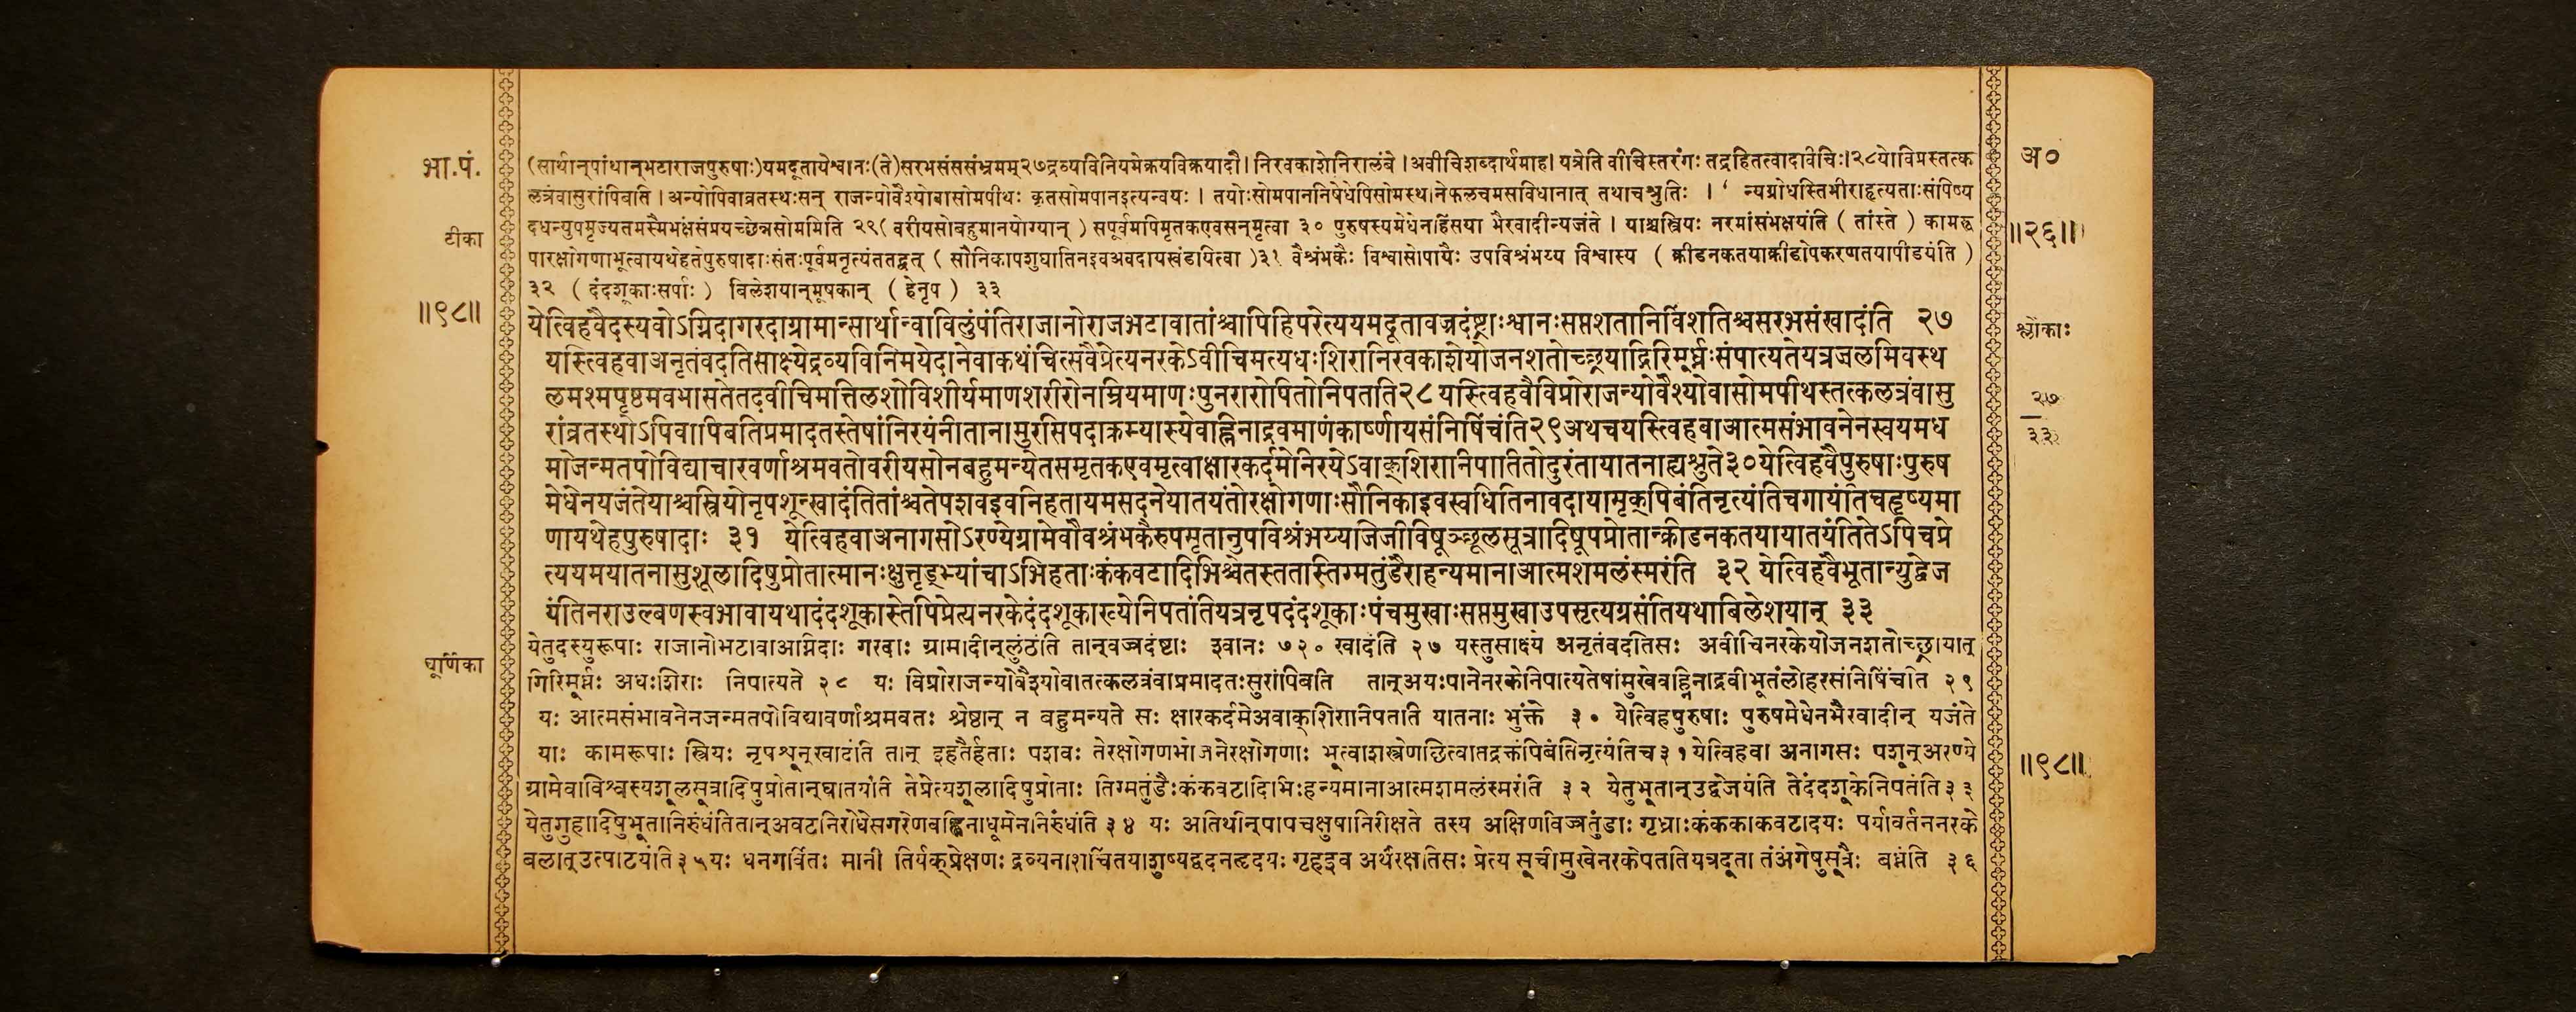 भा.पं.
टीका
॥९८॥
(सार्थान्पांथान्भटाराजपुरुषाः)यमदूतायेश्वानः(ते)सरभसंससंभ्रमम्२७द्रव्यविनियमेक्रयविक्रयादौ।निरवकाशेनिरालंबे।अवीचिशब्दार्थमाह।यत्रेति वीचिस्तरंगः तद्रहितत्वादवीचिः।२८योविप्रस्तत्क
लत्रंवासुरांपिबति।अन्योपिवाव्रतस्थःसन् राजन्योवैश्योवासोमपीथः कृतसोमपानइत्यन्वयः। तयोःसोमपाननिषेधेपिसोमस्थानेफलचमसविधानात् तथाचश्रुतिः । ‘ न्यग्रोधस्तिभीराहृत्यताःसंपिष्य
दधन्युपमृज्यतमस्मैभक्षंसंप्रयच्छेन्नसोममिति २९( वरीयसोबहुमानयोग्यान् ) सपूर्वमपिमृतकएवसन्मृत्वा ३० पुरुषस्यमेधेनहिंसया भैरवादीन्यजंते । याश्चस्त्रियः नरमांसंभक्षयंति ( तांस्ते ) कामद्ध
पारक्षोगणाभूत्वायथेहतेपुरुषादाःसंतःपूर्वमनृत्यंततद्वत् ( सौनिकापशुघातिनइवअवदायखंडायित्वा )३१ वैश्रंभकैः विश्वासोपायैः उपविश्रंभय्य विश्वास्य ( क्रीडनकतयाक्रीडोपकरणतयापीडयंति )
३२ (दंदशूकाःसर्पाः) बिलेशयान्मूषकान् (हेनृप) ३३
येत्विहवैदस्यवोऽग्निदागरदाग्रामान्सार्थान्वाविलुंपंतिराजानोराजभटावातांश्चापिहिपरेत्ययमदूतावज्रदंष्ट्राःश्वानःसप्तशतानिविंशतिश्चसरभसंखादंति २७
यस्त्विहवाअनृतंवदतिसाक्ष्येद्रव्यविनिमयेदानेवाकथंचित्सवैप्रेत्यनरकेऽवीचिमत्यधःशिरानिरवकाशेयोजनशतोच्छ्रायाद्गिरिमूर्ध्नःसंपात्यतेयत्रजलमिवस्थ
लमश्मपृष्ठमवभासतेतदवीचिमत्तिलशोविशीर्यमाणशरीरोनम्रियमाणःपुनरारोपितोनिपतति२८यस्त्विहवैविप्रोराजन्योवैश्योवासोमपीथस्तत्कलत्रंवासु
रांव्रतस्थोऽपिवापिबतिप्रमादतस्तेषांनिरयंनीतानामुरसिपदाक्रम्यास्येवह्निनाद्रवमाणंकार्ष्णायसंनिषिंचंति२९अथचयस्त्विहवाआत्मसंभावनेनस्वयमध
मोजन्मतपोविद्याचारवर्णाश्रमवतोवरीयसोनबहुमन्येतसमृतकएवमृत्वाक्षारकर्दमेनिरयेऽवाक्शिरानिपातितोदुरंतायातनाह्यश्नुते३०येत्विहवैपुरुषाःपुरुष
मेधेनयजंतेयाश्चस्त्रियोनृपशून्खादंतितांश्चतेपशवइवनिहतायमसदनेयातयंतोरक्षोगणाःसौनिकाइवस्वधितिनावदायासृक्पिबंतिनृत्यंतिचगायंतिचहृष्यमा
णायथेहपुरुषादाः ३१ येत्विहवाअनागसोऽरण्येग्रामेवावैश्रंभकैरुपसृतानुपविश्रंभय्यजिजीविषूञ्छूलसूत्रादिषूपप्रोतान्क्रीडनकतयायातयंतितेऽपिचप्रे
त्ययमयातनासुशूलादिषुप्रोतात्मानःक्षुत्तृड्भ्यांचाऽभिहताःकंकवटादिभिश्चेतस्ततस्तिग्मतुंडैराहन्यमानाआत्मशमलंस्मरंति ३२ येत्विहवैभूतान्युद्वेज
यंतिनराउल्बणस्वभावायथादंदशूकास्तेपिप्रेत्यनरकेदंदशूकाख्येनिपतांतियत्रनृपदंदशूकाःपंचमुखाःसप्तमुखाउपसृत्यग्रसंतियथाबिलेशयान् ३३
चूर्णिका
येतुदस्युरूपाः राजानोभटावाआग्निदाः गरदाः ग्रामादीन्लुंठंति तान्वज्रदंष्टाः श्वानः ७२० खादंति २७ यस्तुसाक्ष्ये अनृतंवदतिसः अवीचिनरकेयोजनशतोच्छ्रायात्
गिरिमूर्ध्नः अधःशिराः निपात्यते २८ यः विप्रोराजन्योवैश्योवातत्कलत्रंवाप्रमादतःसुरांपिबति तान्अयःपानेनरकेनिपात्यतेषांमुखेवह्निनाद्रवीभूतंलोहरसंनिषिंचंति २९
यः आत्मसंभावनेनजन्मतपोविद्यावर्णाश्रमवतः श्रेष्ठान् न बहुमन्यते सः क्षारकर्दमेअवाक्शिरानिपतति यातनाः भुंक्ते ३० येत्विहपुरुषाः पुरुषमेधेनभैरवादीन् यजंते
याः कामरूपाः स्त्रियः नृपशून्खादंति तान् इहतैर्हताः पशवः तेरक्षोगणभोजनेरक्षोगणाः भूत्वाशस्त्रेणछित्वातद्रक्तंपिबंतिनृत्यंतिच३१येत्विहवा अनागसः पशून्अरण्ये
ग्रामेवाविश्वस्यशूलसूत्रादिषुप्रोतान्घातयंति तेप्रेत्यशूलादिषुप्रोताः तिग्मतुंडैःकंकवटादिभिःहन्यमानाआत्मशमलंस्मरंति ३२ येतुभूतान्उद्वेजयंति तेदंदशूकेनिपतंति३३
येतुगुहादिषुभूतानिरुंधंतितान्अवटनिरोधेसगरेणवह्निनाधूमेननिरुंधंति ३४ यः अतिथीन्पापचक्षुषानिरीक्षते तस्य अक्षिणीवज्रतुंडाः गृध्राःकंककाकवटादयः पर्यावर्तननरके
बलात्उत्पाटयंति३५यः धनगर्वितः मानी तिर्यक्प्रेक्षणः द्रव्यनाशचिंतयाशुष्यद्वदनहृदयः गृहइव अर्थरक्षतिसः प्रेत्य सूचीमुखेनरकेपततियत्रदूता तंअंगेषुसूत्रैः बध्नंति ३६
अ०
॥२६॥
श्लोकाः
२७
३३
॥९८॥